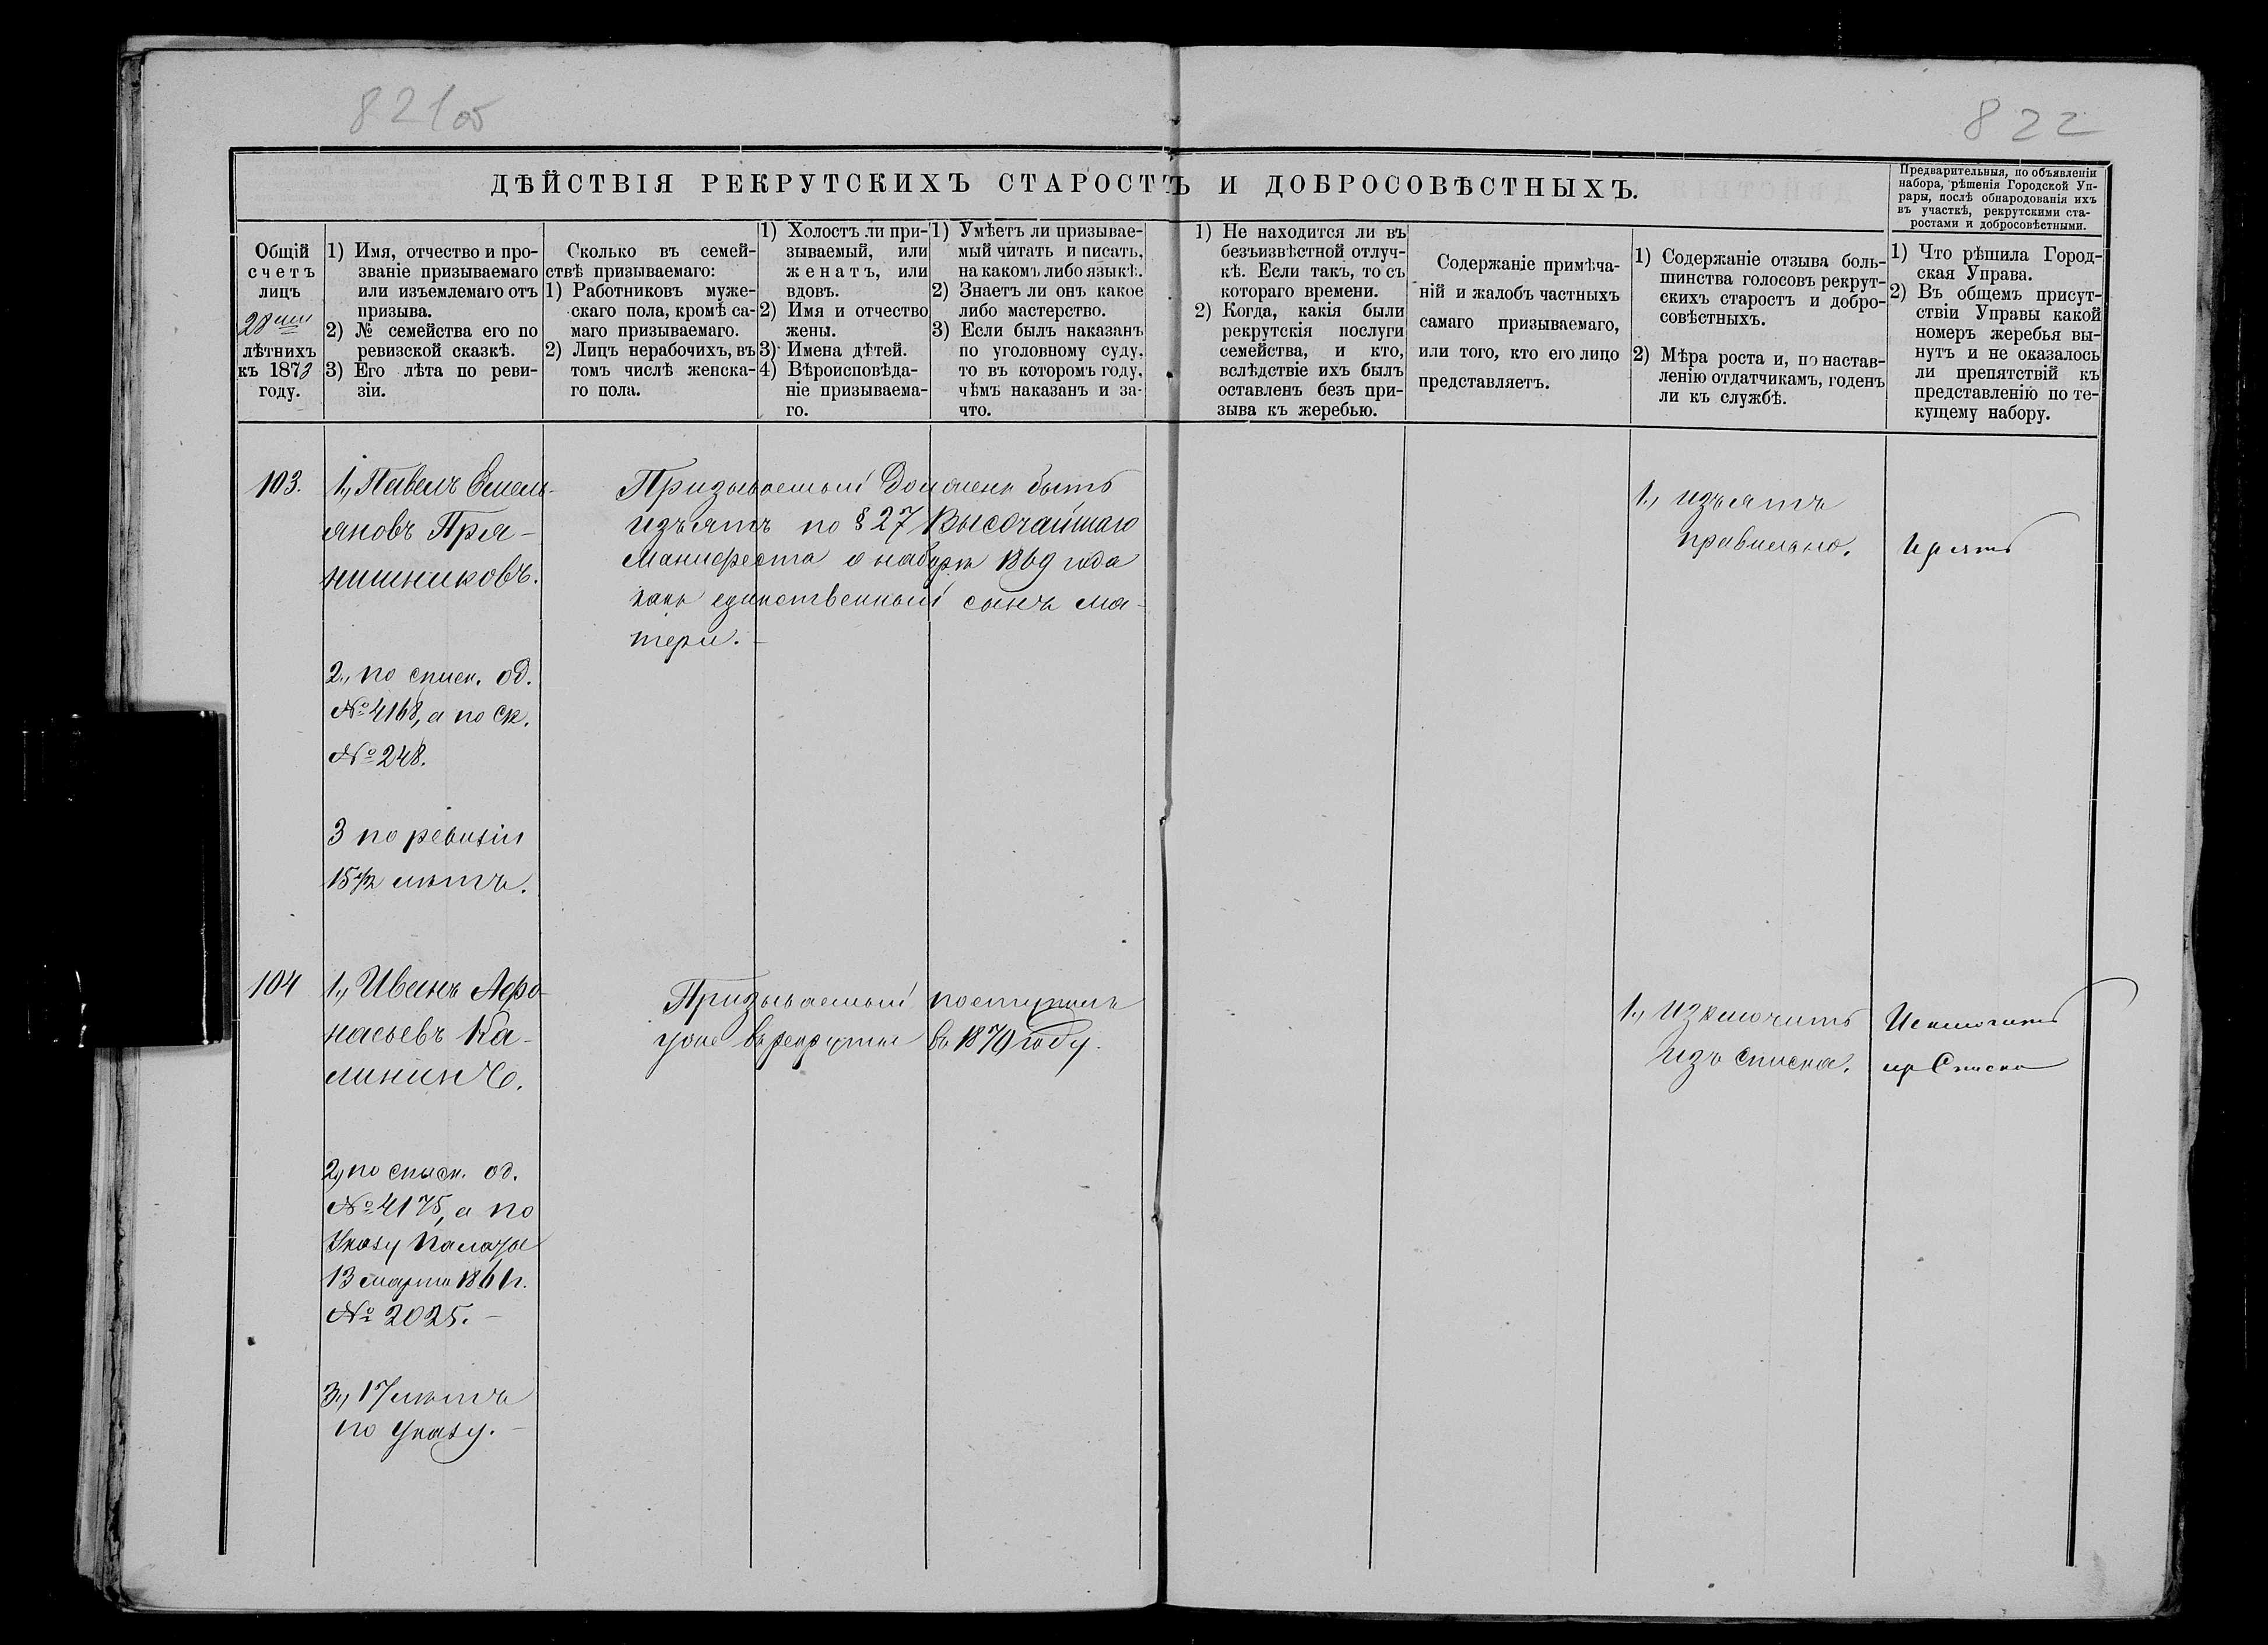 821об
822
ДѢЙСТВІЯ РЕКРУТСКИХЪ СТАРОСТЪ И ДОБРОСОВѢСТНЫХЪ.
Предварительныя, по объявленіи
набора, рѣшенія Городской Уп-
рары, послѣ обнародованія ихъ
въ участкѣ, рекрутскими ста-
ростами и добросовѣстными.
Общій
счетъ
лицъ
28ми
лѣтнихъ
къ 1873
году.
1) Имя, отчество и про-
званіе призываемаго
или изъемлемаго отъ
призыва.
2) № семейства его по
ревизской сказкѣ.
3) Его лѣта по реви-
зіи.
Сколько въ семей-
ствѣ призываемаго:
1) Работниковъ муже-
скаго пола, кромѣ са-
маго призываемаго.
2) Лицъ нерабочихъ, въ
томъ числѣ женска-
го пола.
1) Холостъ ли при-
зываемый, или
женатъ, или
вдовъ.
2) Имя и отчество
жены.
3) Имена дѣтей.
4) Вѣроисповѣда-
ніе призываема-
го.
1) Умѣетъ ли призывае-
мый читать и писать,
на какомъ либо языкѣ.
2) Знаетъ ли онъ какое
либо мастерство.
3) Если былъ наказанъ
по уголовному суду,
то въ которомъ году,
чѣмъ наказанъ и за
что.
1) Не находится ли въ
безъизвѣстной отлуч-
кѣ. Если такъ, то съ
котораго времени.
2) Когда, какія были
рекрутскія послуги
семейства, и кто,
вслѣдствіе ихъ былъ
оставленъ безъ при-
зыва къ жеребью.
Содержаніе примѣча-
ній и жалобъ частныхъ
самаго призываемаго,
или того, кто его лицо
представляетъ.
1) Содержаніе отзыва боль-
шинства голосовъ рекрут-
скихъ старостъ и добро-
совѣстныхъ.
2) Мѣра роста и, по настав-
ленію отдатчикамъ, годенъ
ли къ службѣ.
1) Что рѣшила Город-
ская Управа.
2) Въ общемъ присут-
ствіи Управы какой
номеръ жеребья вы-
нутъ и не оказалось
ли препятствій къ
представленію по те-
кущему набору.
103.
1., Павелъ Емель-
яновъ Пря-
нишниковъ.
2., по списк. од.
№ 4168, а по ск.
№ 248.
3 по ревизіи
15 1/2 лѣтъ.
Призываемый долженъ быть
изъятъ по § 27 Высочайшаго
Манифеста о наборѣ 1869 года
какъ единственный сынъ ма-
тери.
1., изъятъ
правильно.
Изъять
104
1., Иванъ Афо-
насьевъ Ка-
лининъ.
2., по списк. од.
№ 4175, а по
Указу Палаты
13 марта 1861 г.
№ 2025.
3., 17 лѣтъ
по Указу.
Призываемый поступилъ
уже въ рекруты въ 1870 году.
1., изключить
изъ списка.
Исключить
из Списка